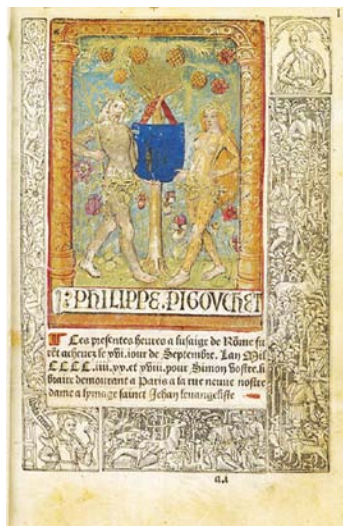 PHILIPPE PIGOVCHET
Ces presentes heures a lusaige de Rōme fu
rēt acheuez le xvi. iour de Septembre. Lan Mil
CCCC. iiii.xx. et xviii. pour Simon Vostre. li
braire demourant a Paris a la rue neuue nostre
dame a lymage sainct Jehan leuangeliste